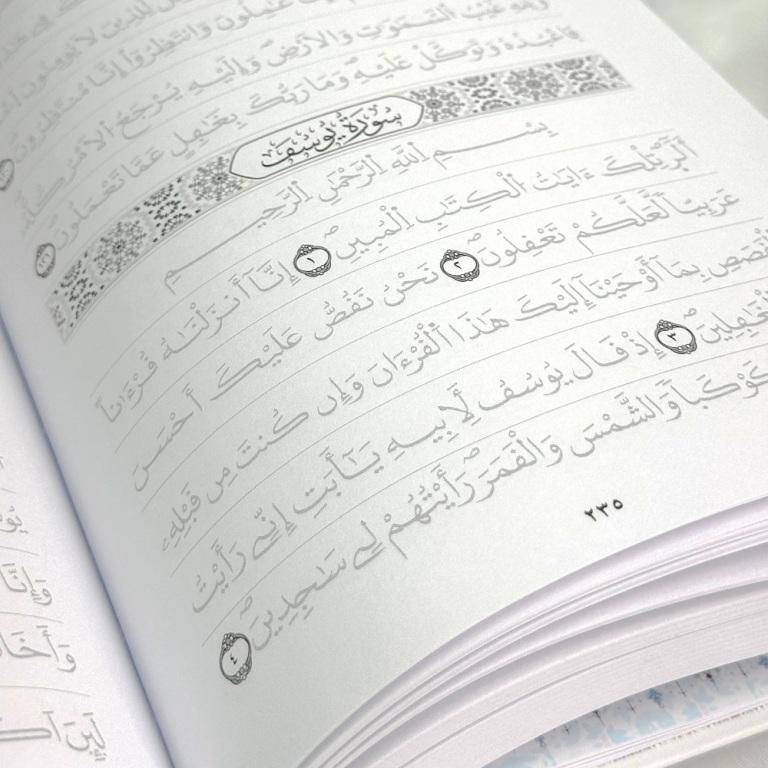 لِلذِينَ لَا يُومِنُونَ
عَٰمِلُونَ وَانتَظِرُوٓا إِنَّا مُنتَظِرُونَ
وَلِلهِ غَيْبُ السَّمَٰوَٰتِ وَالَارْضِ وَإِلَيْهِ يُرْجَعُ الَامْرُ كُلُّهُۥ
فَاعْبُدْهُ وَتَوَكَّلْ عَلَيْهِ وَمَا رَبُّكَ بِغَٰفِلٍ عَمَّا تَعْمَلُونَ
سُورَةُ يُوسُفَ
بِسْمِ اللَّهِ الرَّحْمَٰنِ الرَّحِيمِ
أَلَٓرَ تِلْكَ ءَايَٰتُ الْكِتَٰبِ الْمُبِينِ ١ إِنَّآ أَنزَلْنَٰهُ قُرْءَٰناً
عَرَبِيّاً لَّعَلَّكُمْ تَعْقِلُونَ ٢ نَحْنُ نَقُصُّ عَلَيْكَ أَحْسَنَ
الْقَصَصِ بِمَآ أَوْحَيْنَآ إِلَيْكَ هَٰذَا الْقُرْءَانَ وَإِن كُنتَ مِن قَبْلِهِۦ
الْغَٰفِلِينَ ٣ إِذْ قَالَ يُوسُفُ لِأَبِيهِ يَٰٓأَبَتِ إِنِّي رَأَيْتُ
كَوْكَباً وَالشَّمْسَ وَالْقَمَرَ رَأَيْتُهُمْ لِي سَٰجِدِينَ ٤
٢٣٥
وَإِنَّا